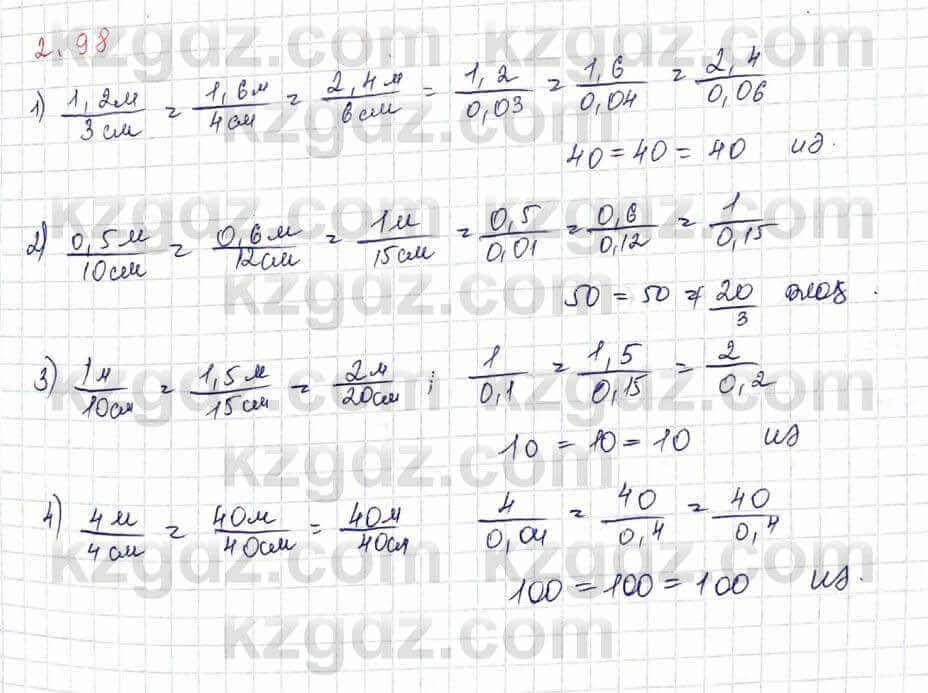 2.98
1) 1,2м/3см = 1,6м/4см = 2,4м/6см = 1,2/0,03 = 1,6/0,04 = 2,4/0,06
40 = 40 = 40 из.
2) 0,5м/10см = 0,6м/12см = 1м/15см = 0,5/0,01 = 0,6/0,12 = 1/0,15
50 = 50 ≠ 20/3
3) 1м/10см = 1,5м/15см = 2м/20см ; 1/0,1 = 1,5/0,15 = 2/0,2
10 = 10 = 10 из
4) 4м/4см = 40м/40см = 40м/40см 4/0,04 = 40/0,4 = 40/0,4
100 = 100 = 100 из.
kzgdz.com